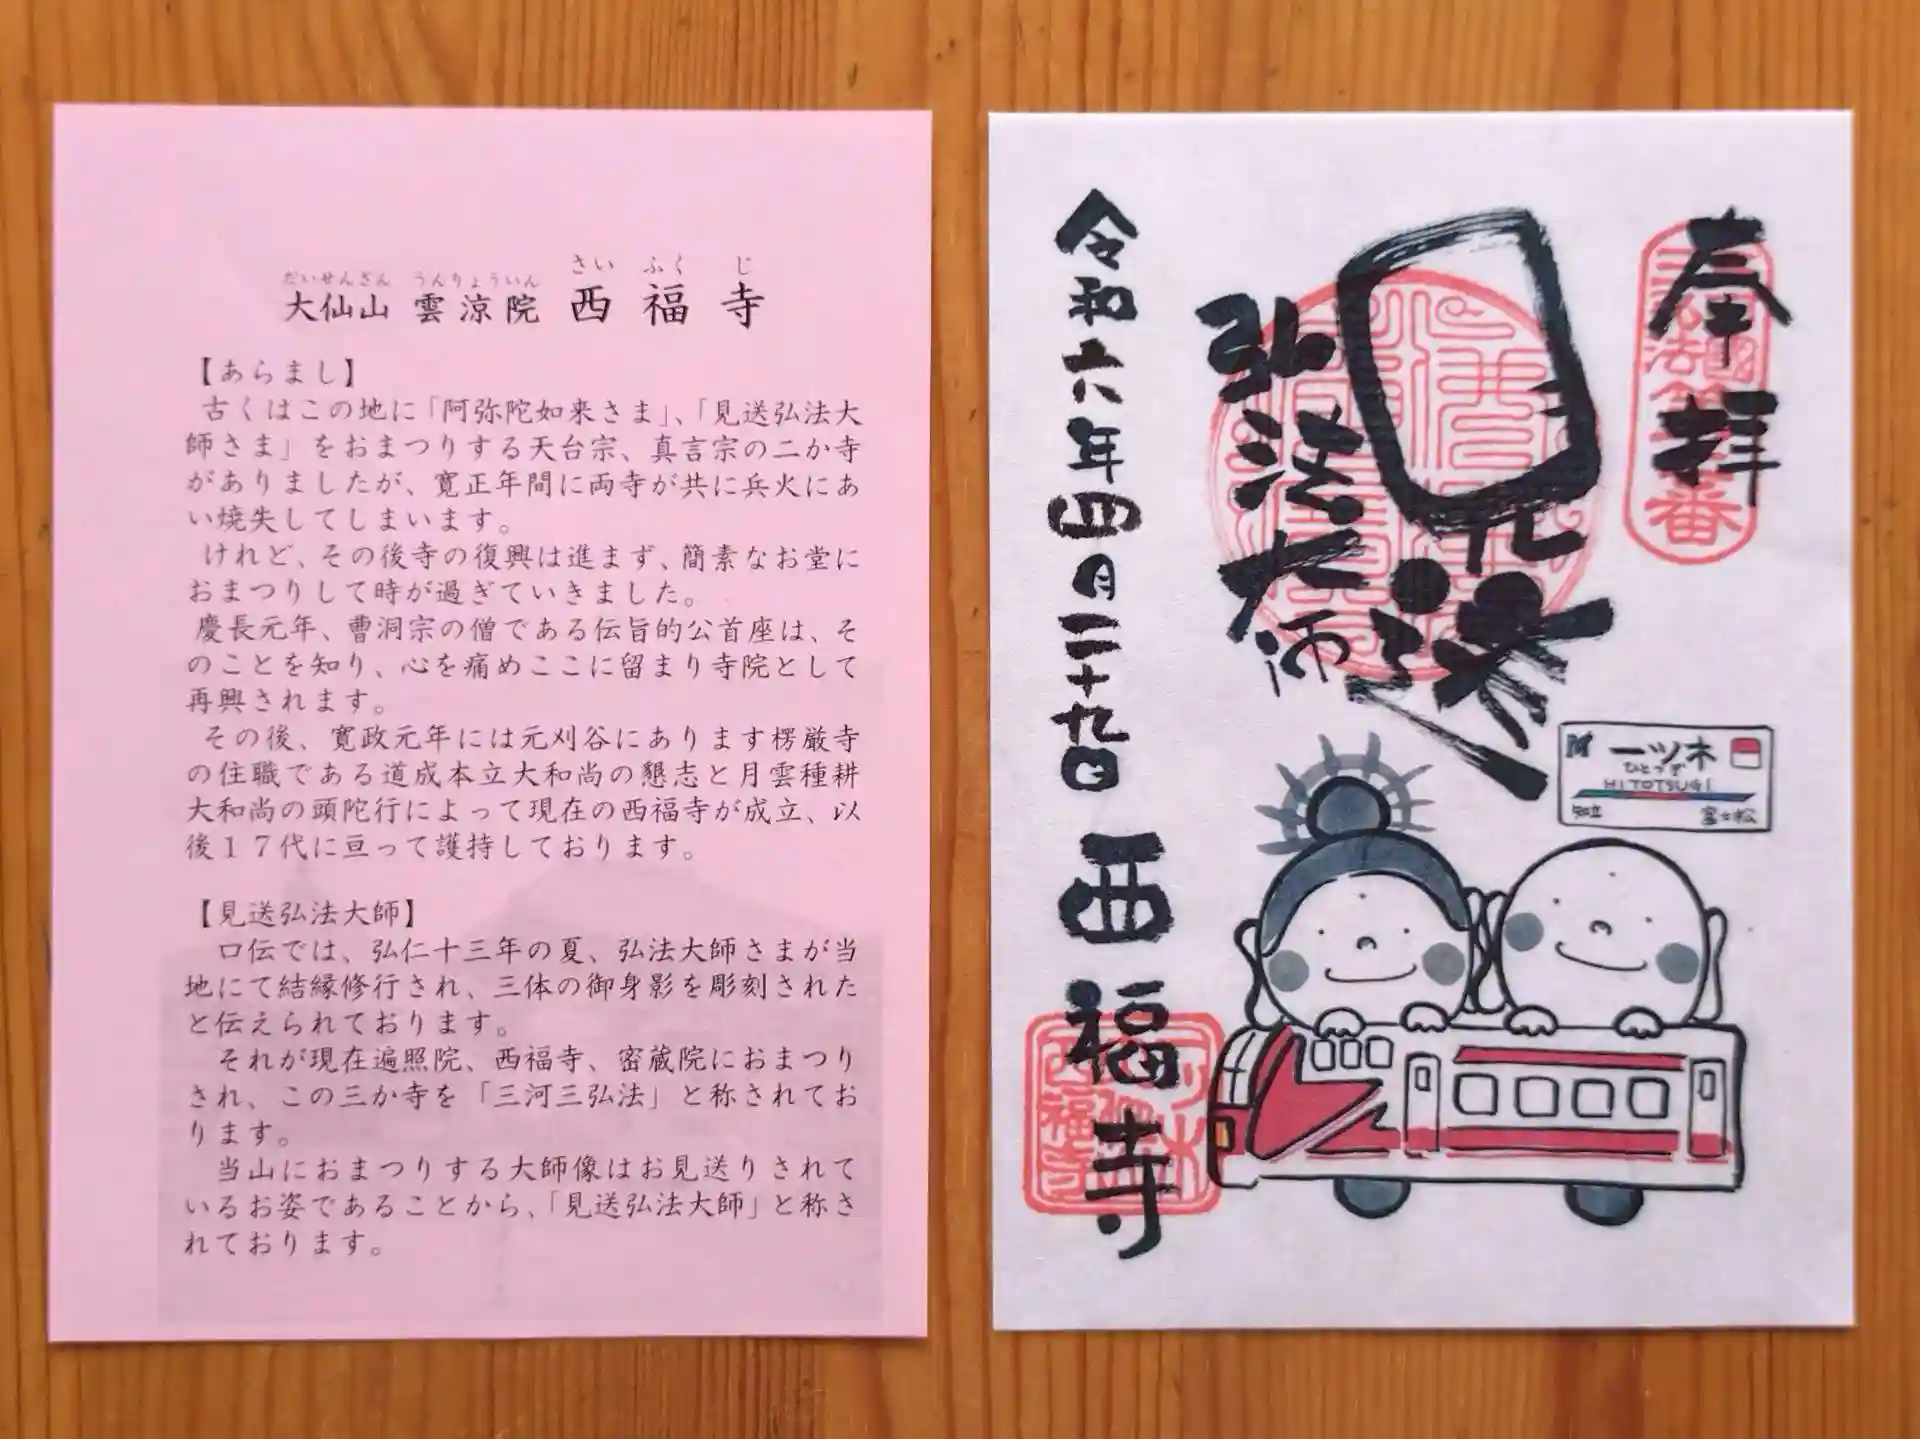 だいせんざん うんりょういん さい ふく じ
大仙山 雲涼院 西福寺
【あらまし】
古くはこの地に「阿弥陀如来さま」、「見送弘法大
師さま」をおまつりする天台宗、真言宗の二か寺
がありましたが、寛正年間に両寺が共に兵火にあ
い焼失してしまいます。
けれど、その後寺の復興は進まず、簡素なお堂に
おまつりして時が過ぎていきました。
慶長元年、曹洞宗の僧である伝旨的公首座は、そ
のことを知り、心を痛めここに留まり寺院として
再興されます。
その後、寛政元年には元刈谷にあります楞厳寺
の住職である道成本立大和尚の懇志と月雲種耕
大和尚の頭陀行によって現在の西福寺が成立、以
後１７代に亘って護持しております。
【見送弘法大師】
口伝では、弘仁十三年の夏、弘法大師さまが当
地にて結縁修行され、三体の御身影を彫刻された
と伝えられております。
それが現在遍照院、西福寺、密蔵院におまつり
され、この三か寺を「三河三弘法」と称されてお
ります。
当山におまつりする大師像はお見送りされて
いるお姿であることから、「見送弘法大師」と称さ
れております。
奉拝
弘法大師
令和六年四月二十九日
西福寺
一ツ木
ひとつぎ
HITOTSUGI
知立 富士松